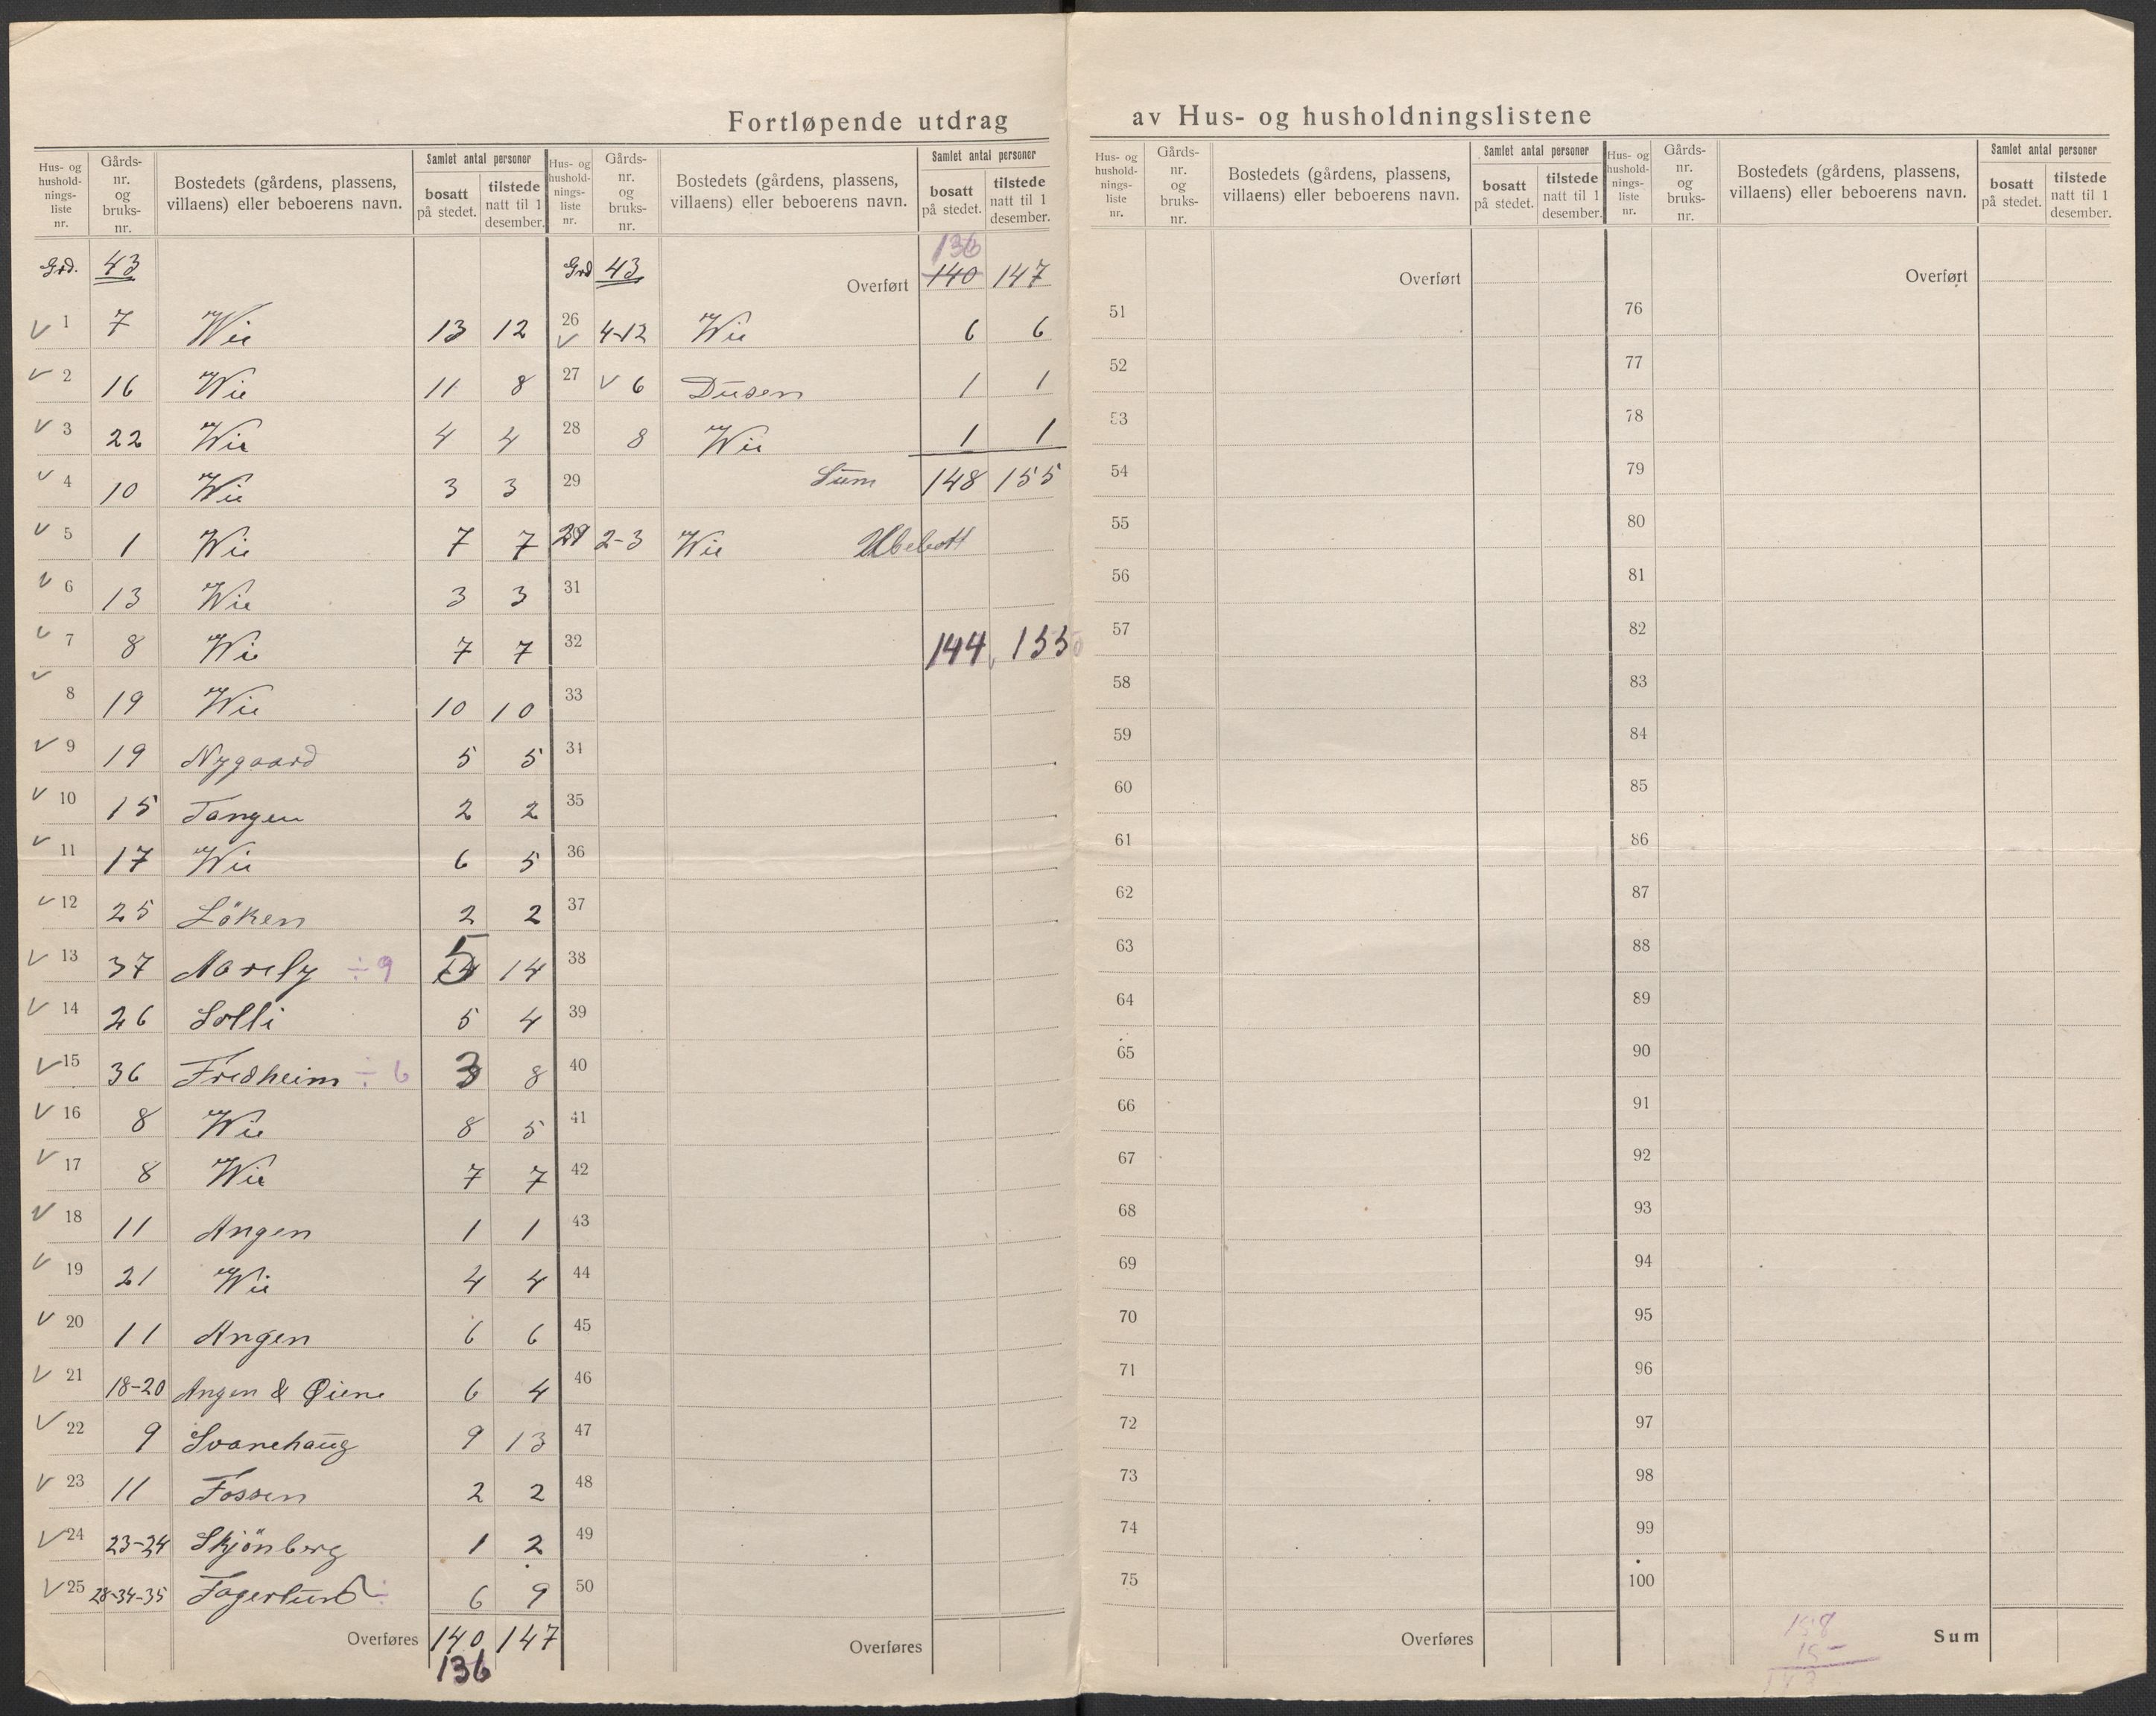 Fortløpende utdrag av Hus- og husholdningslistene
Hus- og hushold-nings-liste nr. Gårds-nr. og bruks-nr. Bostedets (gårdens, plassens, villaens) eller beboerens navn. Samlet antal personer bosatt på stedet. tilstede natt til 1 desember.
Grd. 43
✓ 1 7 Wie 13 12
✓ 2 16 Wie 11 8
✓ 3 22 Wie 4 4
✓ 4 10 Wie 3 3
✓ 5 1 Wie 7 7
✓ 6 13 Wie 3 3
✓ 7 8 Wie 7 7
✓ 8 19 Wie 10 10
✓ 9 19 Nygaard 5 5
✓ 10 15 Tangen 2 2
✓ 11 17 Wie 6 5
✓ 12 25 Löken 2 2
✓ 13 37 Marely ÷ 9 5 14
✓ 14 26 Solli 5 4
✓ 15 36 Fredheim ÷ 6 3 8
✓ 16 8 Wie 8 5
✓ 17 8 Wie 7 7
✓ 18 11 Angen 1 1
✓ 19 21 Wie 4 4
✓ 20 11 Angen 6 6
✓ 21 18-20 Angen & Øiene 6 4
✓ 22 9 Svanehaug 9 13
✓ 23 11 Fossen 2 2
✓ 24 23-24 Skjönberg 1 2
✓ 25 28-34-35 Fagerlund ÷ 6 9
Overføres 140 147
136
Hus- og hushold-nings-liste nr. Gårds-nr. og bruks-nr. Bostedets (gårdens, plassens, villaens) eller beboerens navn. Samlet antal personer bosatt på stedet. tilstede natt til 1 desember.
136
Grd 43 Overført 140 147
26 ✓ 4-12 Wie 6 6
27 ✓ 6 Dusen 1 1
28 8 Wie 1 1
29 Sum 148 155
29 2-3 Wie Ubebott
31
32 144 155
33
34
35
36
37
38
39
40
41
42
43
44
45
46
47
48
49
50
Overføres
Hus- og hushold-nings-liste nr. Gårds-nr. og bruks-nr. Bostedets (gårdens, plassens, villaens) eller beboerens navn. Samlet antal personer bosatt på stedet. tilstede natt til 1 desember.
Overført
51
52
53
54
55
56
57
58
59
60
61
62
63
64
65
66
67
68
69
70
71
72
73
74
75
Overføres
Hus- og hushold-nings-liste nr. Gårds-nr. og bruks-nr. Bostedets (gårdens, plassens, villaens) eller beboerens navn. Samlet antal personer bosatt på stedet. tilstede natt til 1 desember.
Overført
76
77
78
79
80
81
82
83
84
85
86
87
88
89
90
91
92
93
94
95
96
97
98
99
100
158
15
Sum